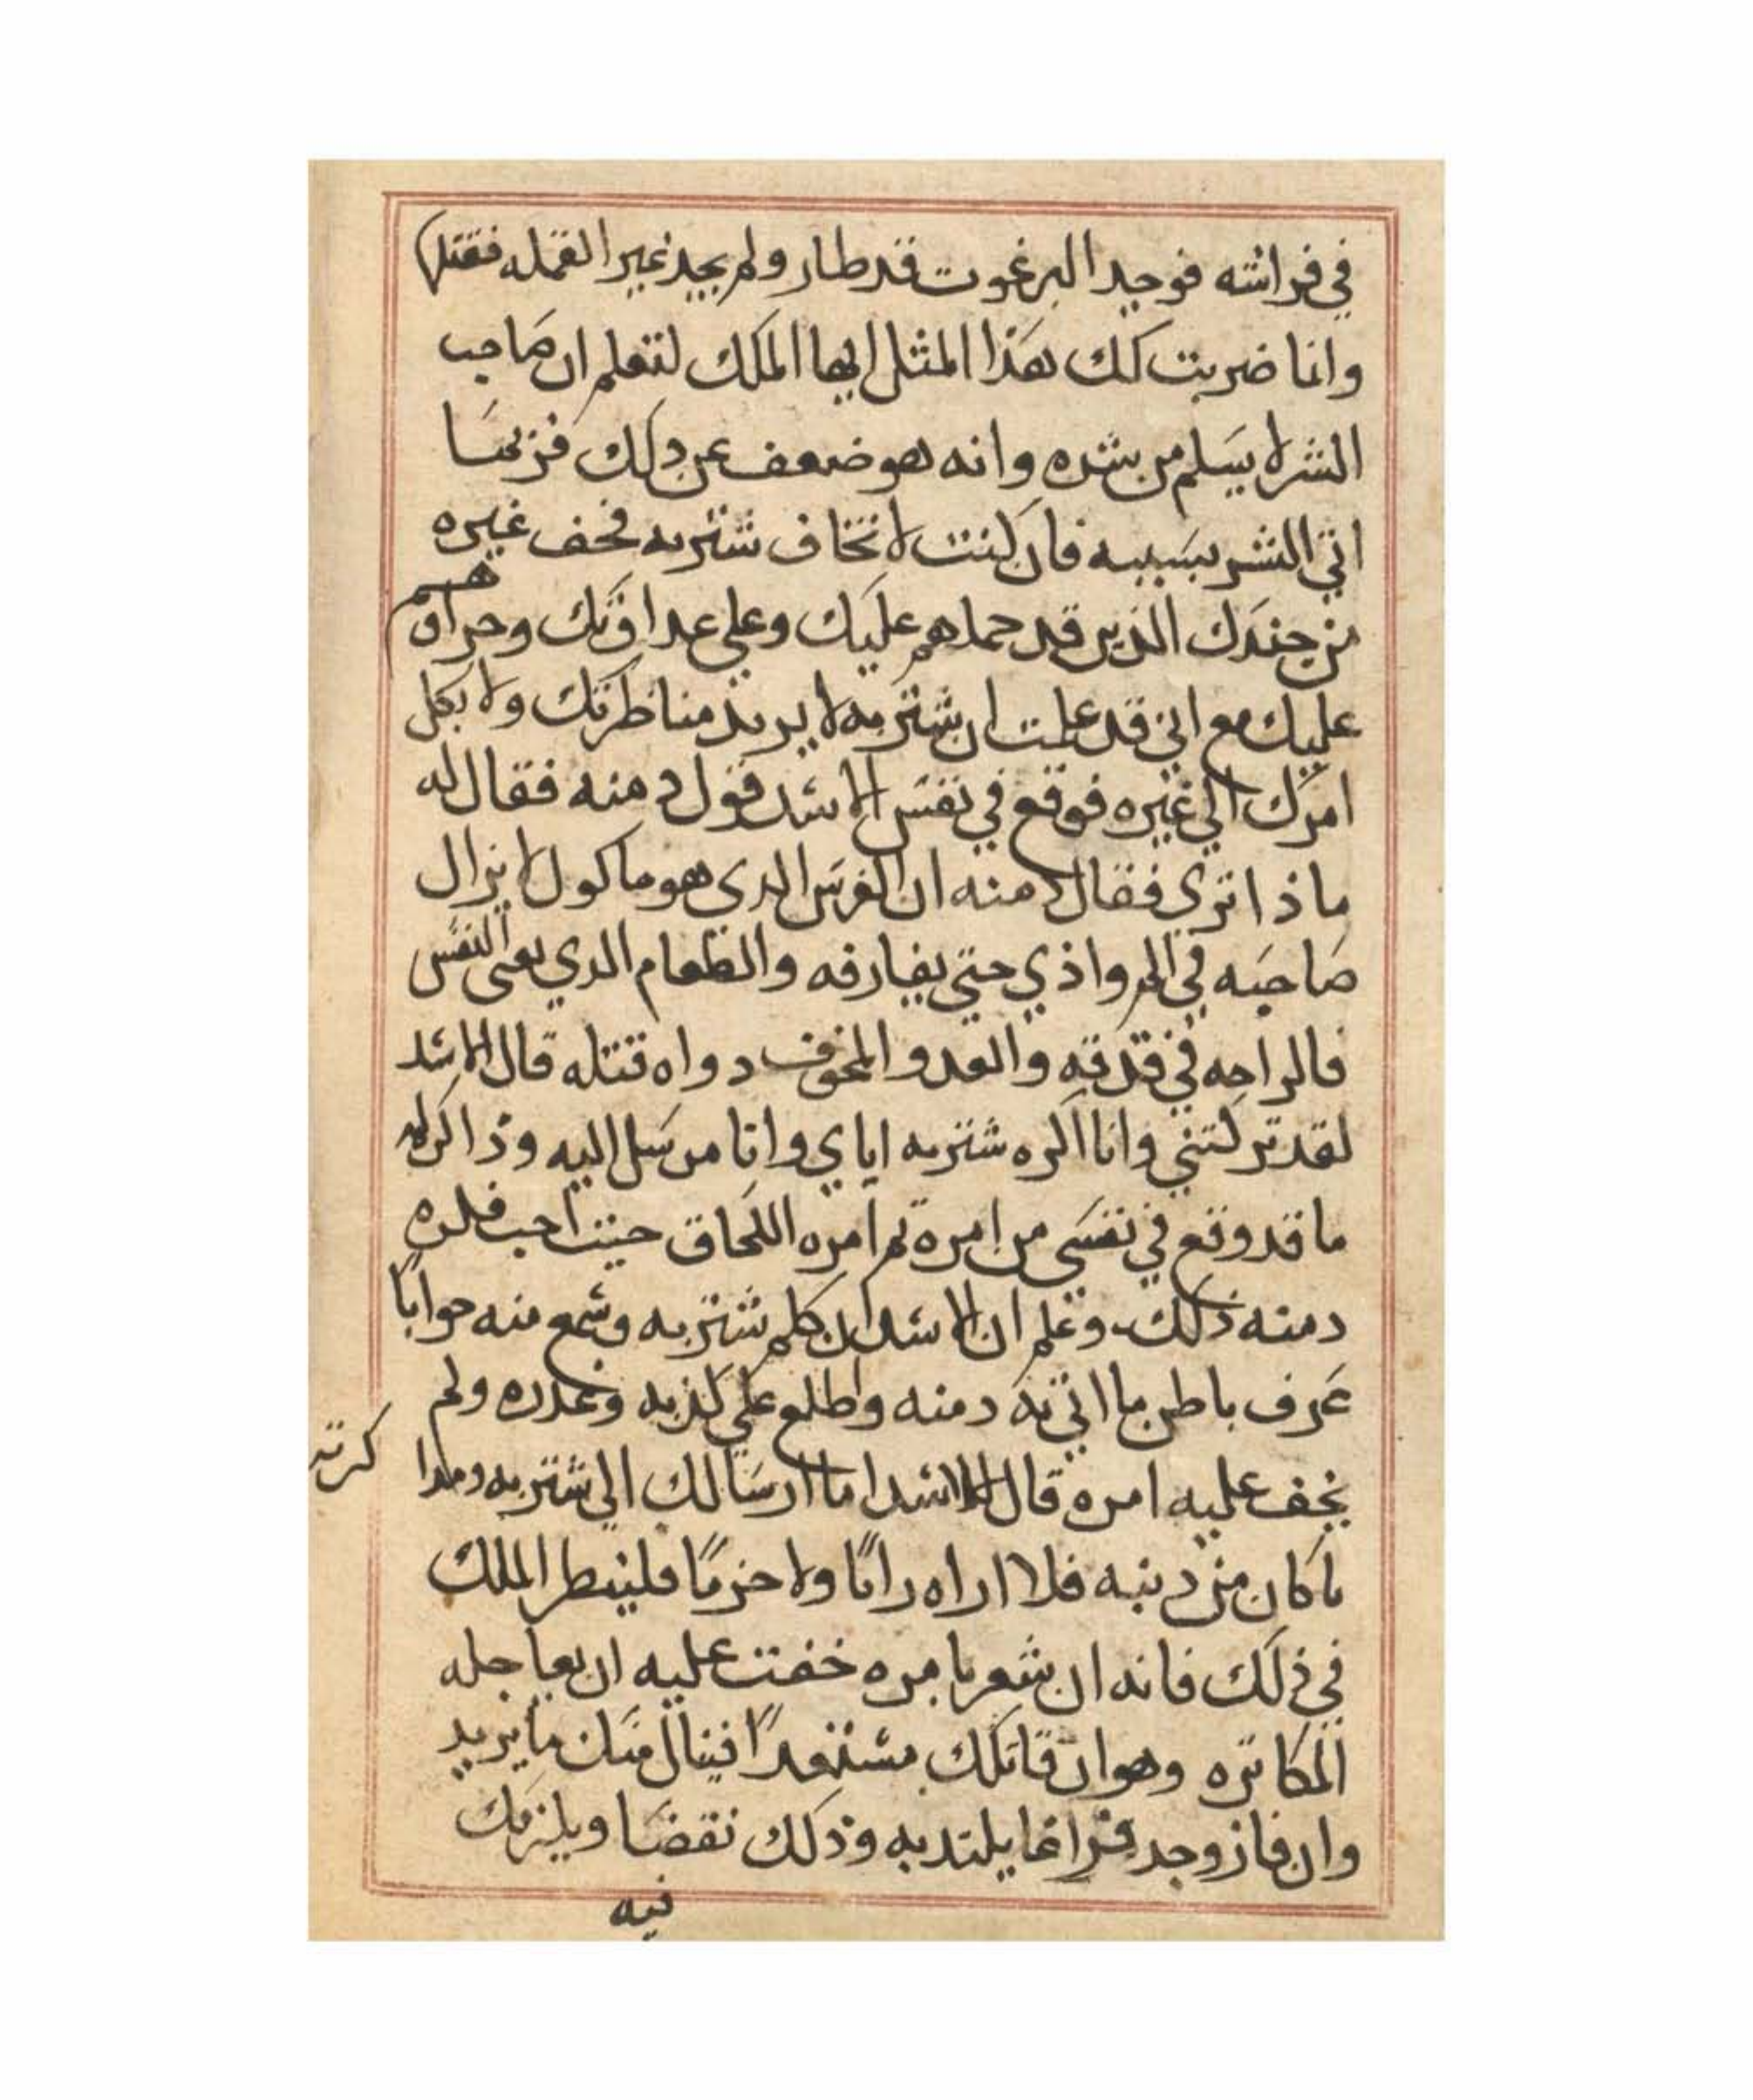 في فراشه فوجد البرغوت قد طار ولم يجد غير القمله فقتلها
وانما ضربت لك هذا المثل ايها الملك لتعلم ان صاحب
الشر لا يسلم من شره وانه هو ضعف عن دلك فربما
اتي الشر بسببه فان كنت لا تخاف شتربه فخف غيره
من جندك الذين قد حملهم عليك وعلي عداوتك وجراوهم
عليك مع اني قد علمت ان شتربه لا يريد مناظرتك ولا يكل
امرك الي غيره فوقع في نفس الاسد قول دمنه فقال له
ماذا تري فقال دمنه ان الضرس الدي هو ماكول لا يزال
صاحبه في الم واذي حتي يفارقه والطعام الدي يعى النفس
فالراحه في قدقه والعدو المخوف دواه قتله قال الاسد
لقد تركتني وانا اكره شتربه اياي وانا مرسل اليه وذاكر له
ما قد وقع في نفسي من امره ثم امره اللحاق حيت احب فكره
دمنه ذلك وعلم ان الاسد ان كلم شتربه وسمع منه جوابًا
عرف باطن ما اتي به دمنه واطلع علي كذبه وغدره ولم
يخف عليه امره قال الاسد اما ارسالك الي شتربه ومدا كرته
ما كان من دنبه فلا اراه رايًا ولا حزمًا فلينظر الملك
في ذلك فانه ان شعر بامره خفت عليه ان يعاجله
المكاتره وهو ان قاتلك مستعدًا فينال منك ما يريد
وان فاز وجد يلتد به وذلك نقضا ويلزمك
فيه